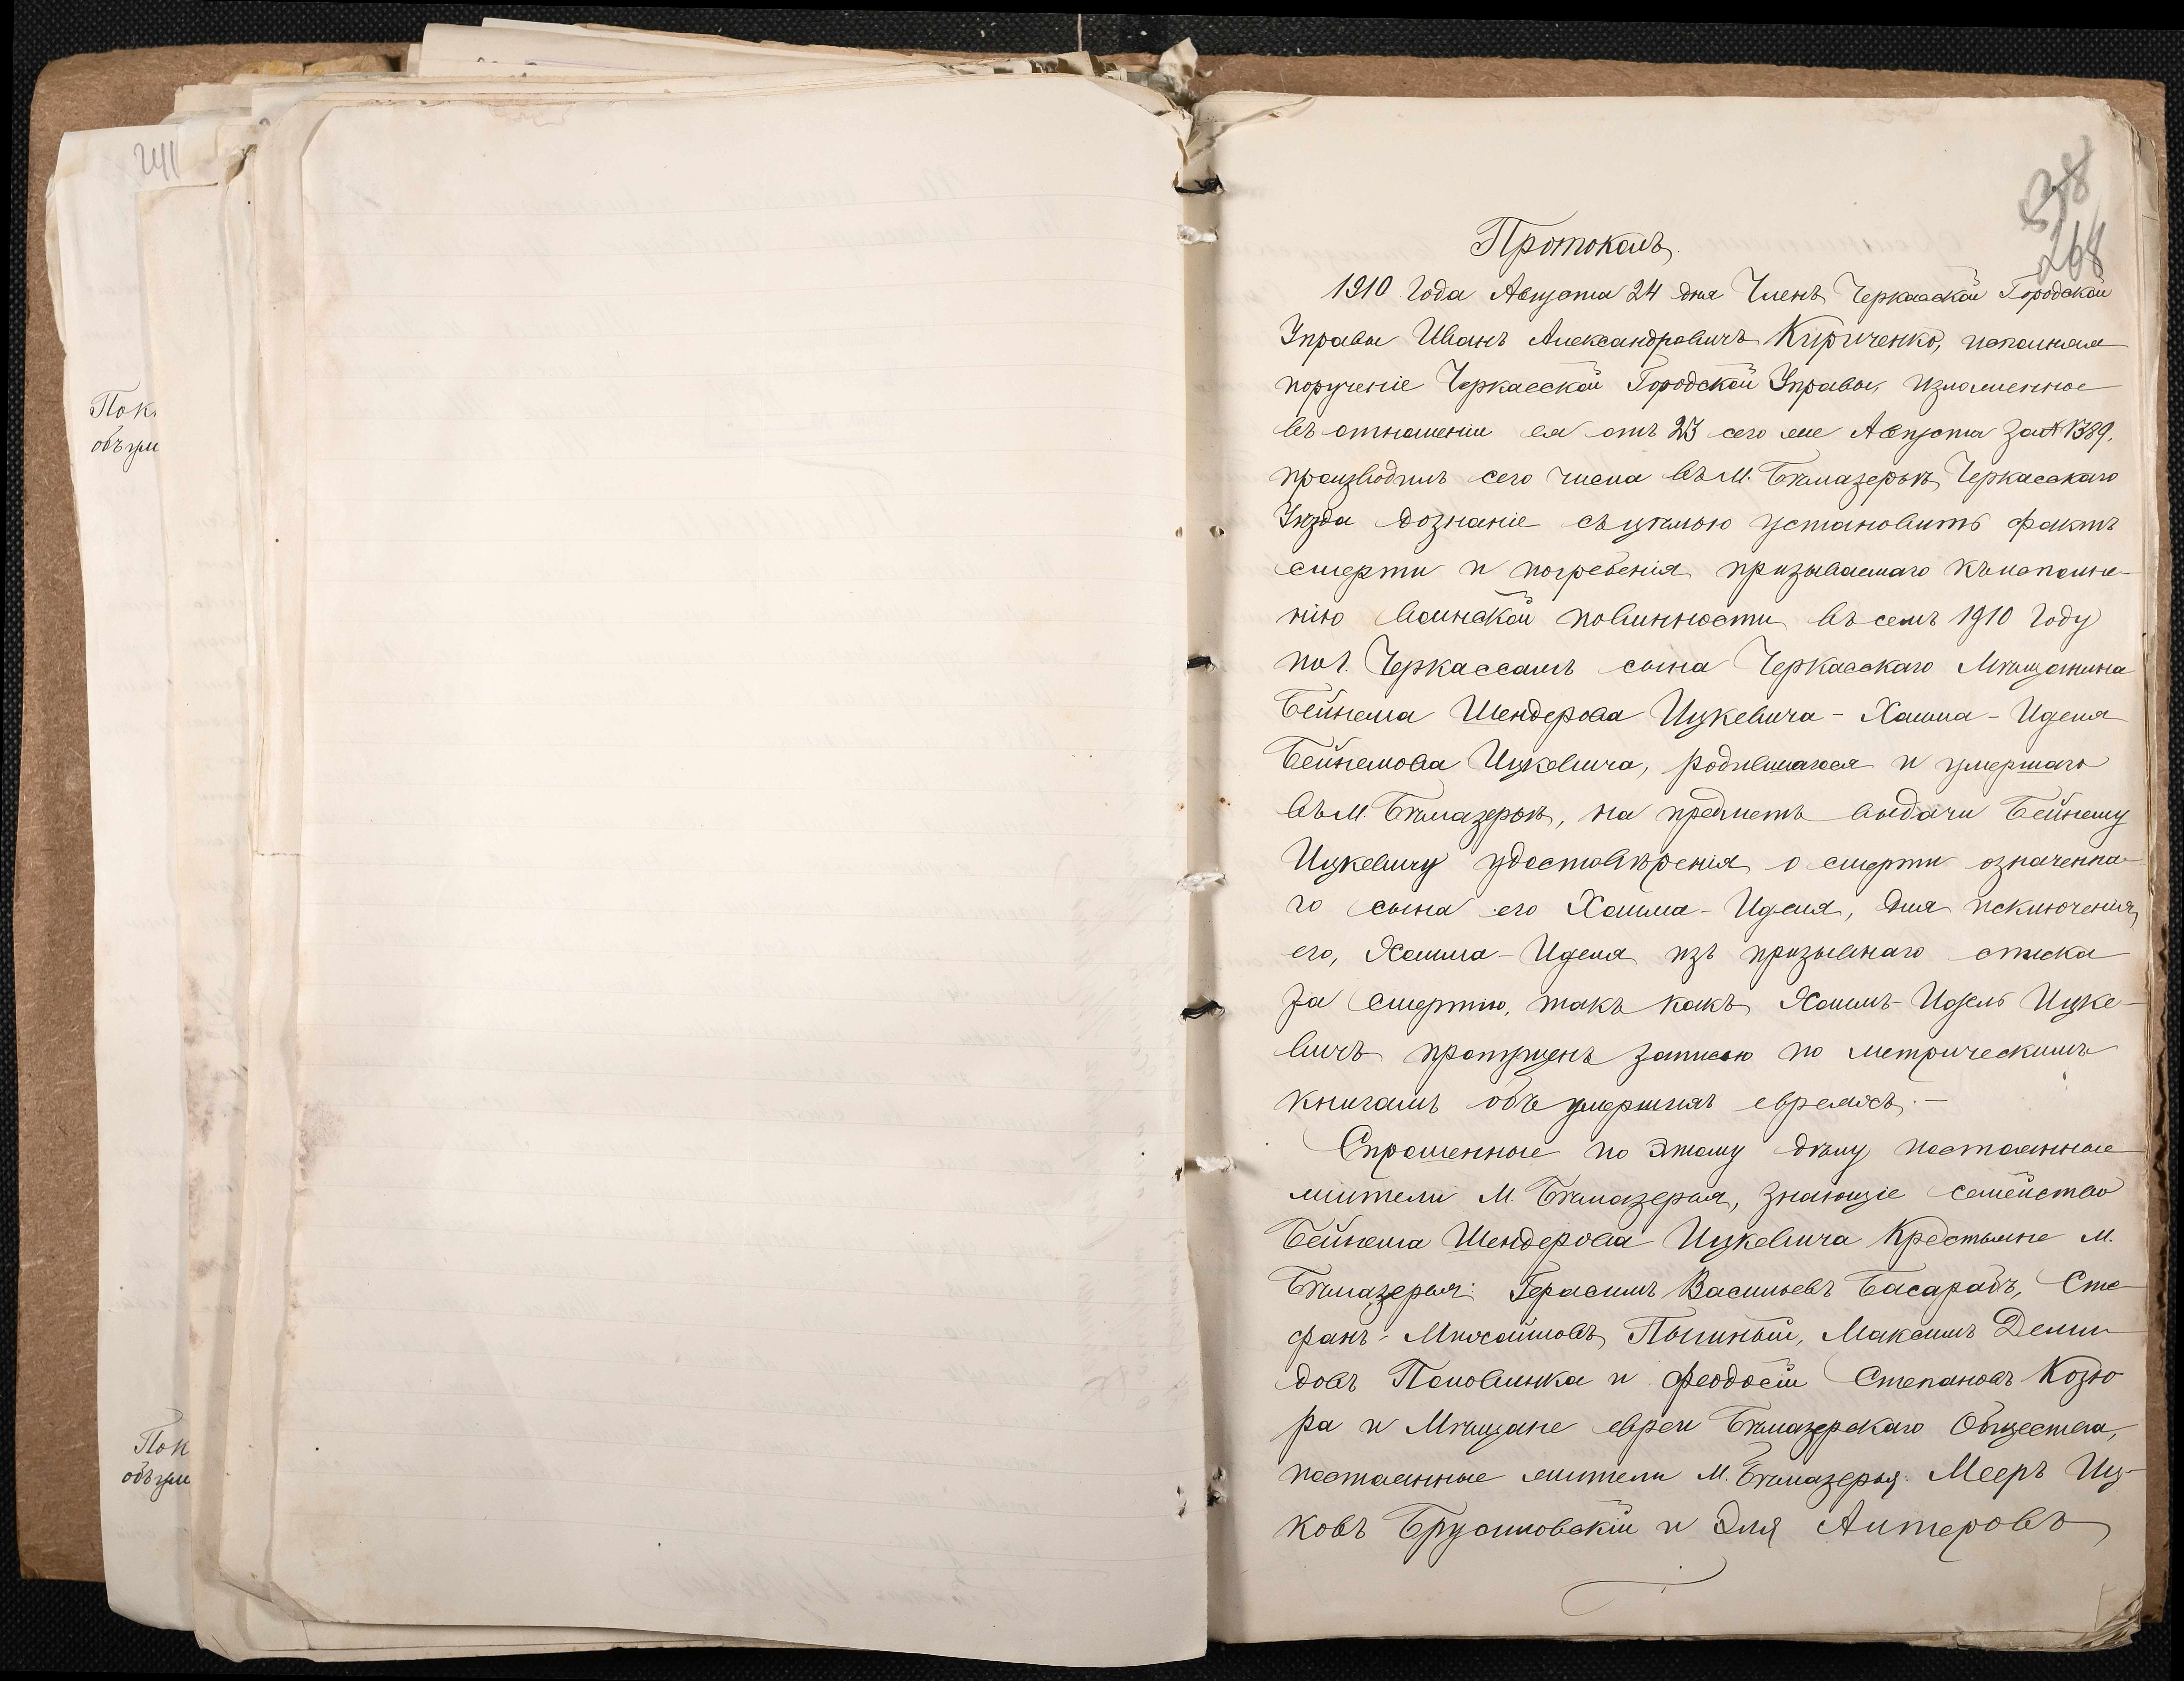 241
Пок
объ уме
Пок
объ уме
38
268
Протоколъ.
1910 года Августа 24 дня Членъ Черкасской Городской
Управы Иванъ Александровичъ Кириченко, исполняя
порученіе Черкасской Городской Управы, изложенное
въ отношеніи ея отъ 23 сего же Августа за № 1389,
производилъ сего числа въ М. Бѣлозерьѣ, Черкасскаго
Уѣзда дознаніе съ цѣлью установить фактъ
смерти и погребенія призываемаго къ исполне-
нію воинской повинности въ семъ 1910 году
по г. Черкассамъ сына Черкасскаго Мѣщанина
Бейнеша Шендерова Ицкевича - Хаима - Иделя
Бейнешова Ицкевича, родившагося и умершаго
въ М. Бѣлозерьѣ, на предметъ выдачи Бейнешу
Ицкевичу удостовѣренія о смерти означенна-
го сына его Хаима - Иделя, для исключенія
его, Хаима - Иделя изъ призывнаго списка
за смертію, такъ какъ Хаимъ - Идель Ицке-
вичъ пропущенъ записью по метрическимъ
книгамъ объ умершихъ евреяхъ. -
Спрошенные по этому дѣлу постоянные
жители М. Бѣлозерья, знающіе семейство
Бейнеша Шендерова Ицкевича Крестьяне М.
Бѣлозерья: Герасимъ Васильевъ Басарабъ, Сте
фанъ Михайловъ Пыльный, Максимъ Деми
довъ Половинка и Феодосій Степановъ Козю
ра и Мѣщане евреи Бѣлозерскаго Общества,
постоянные жители М. Бѣлозерья: Мееръ Иц-
ковъ Брусиловскій и Эля Алтеровъ